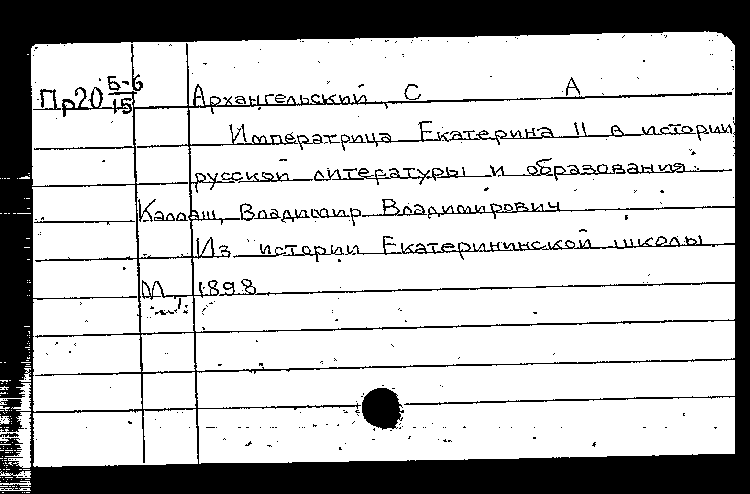 Пр20 5-6/15 Архангельский, С А
Императрица Екатерина II в истории
русской литературы и образования.
Каллаш, Владимир Владимирович
Из истории Екатерининской школы.
М, 1898